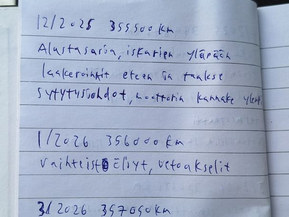 12/2025 355500 km
Alustasarja, iskarien yläpään
laakeroinnit eteen ja taakse
sytytysjohdot, moottorin kannake yläp
1/2026 356000 km
vaihteistoöljyt, vetoakselit
3/2026 357050 km